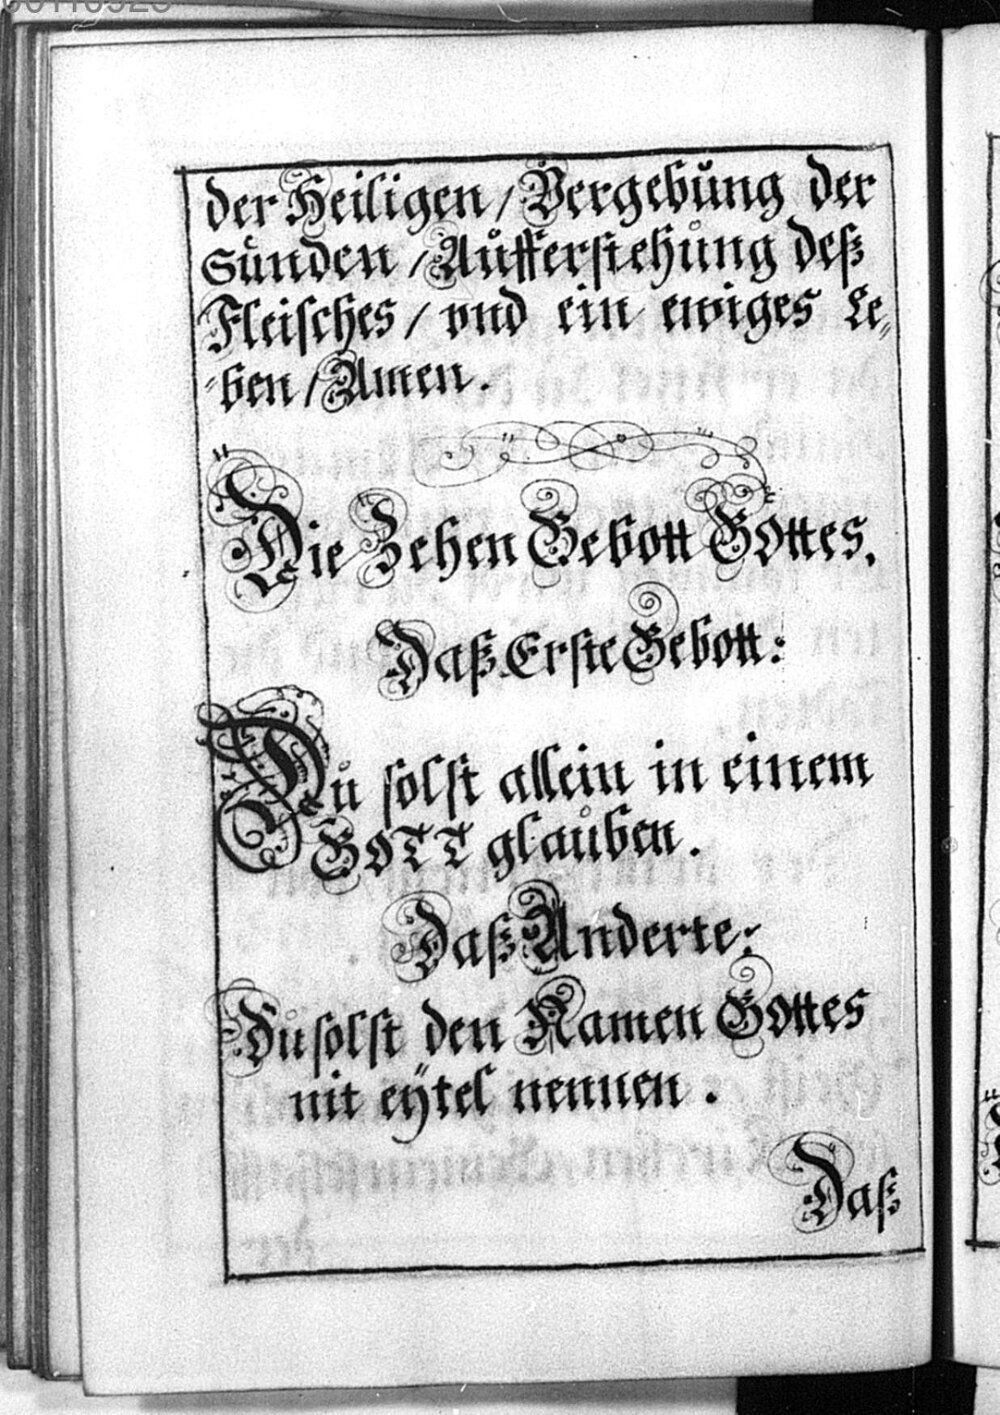 der Heiligen / Vergebůng der
Sünden / Aůfferstehůng deß
Fleisches / vnd ein ewiges Le⸗
⸗ben / Amen.
Die Zehen Gebott GOttes.
Daß Erste Gebott:
Dů solst allein in einem
GOTT glaůben.
Daß Anderte:
Dů solst den Namen Gottes
nit eÿtel nennen.
Daß